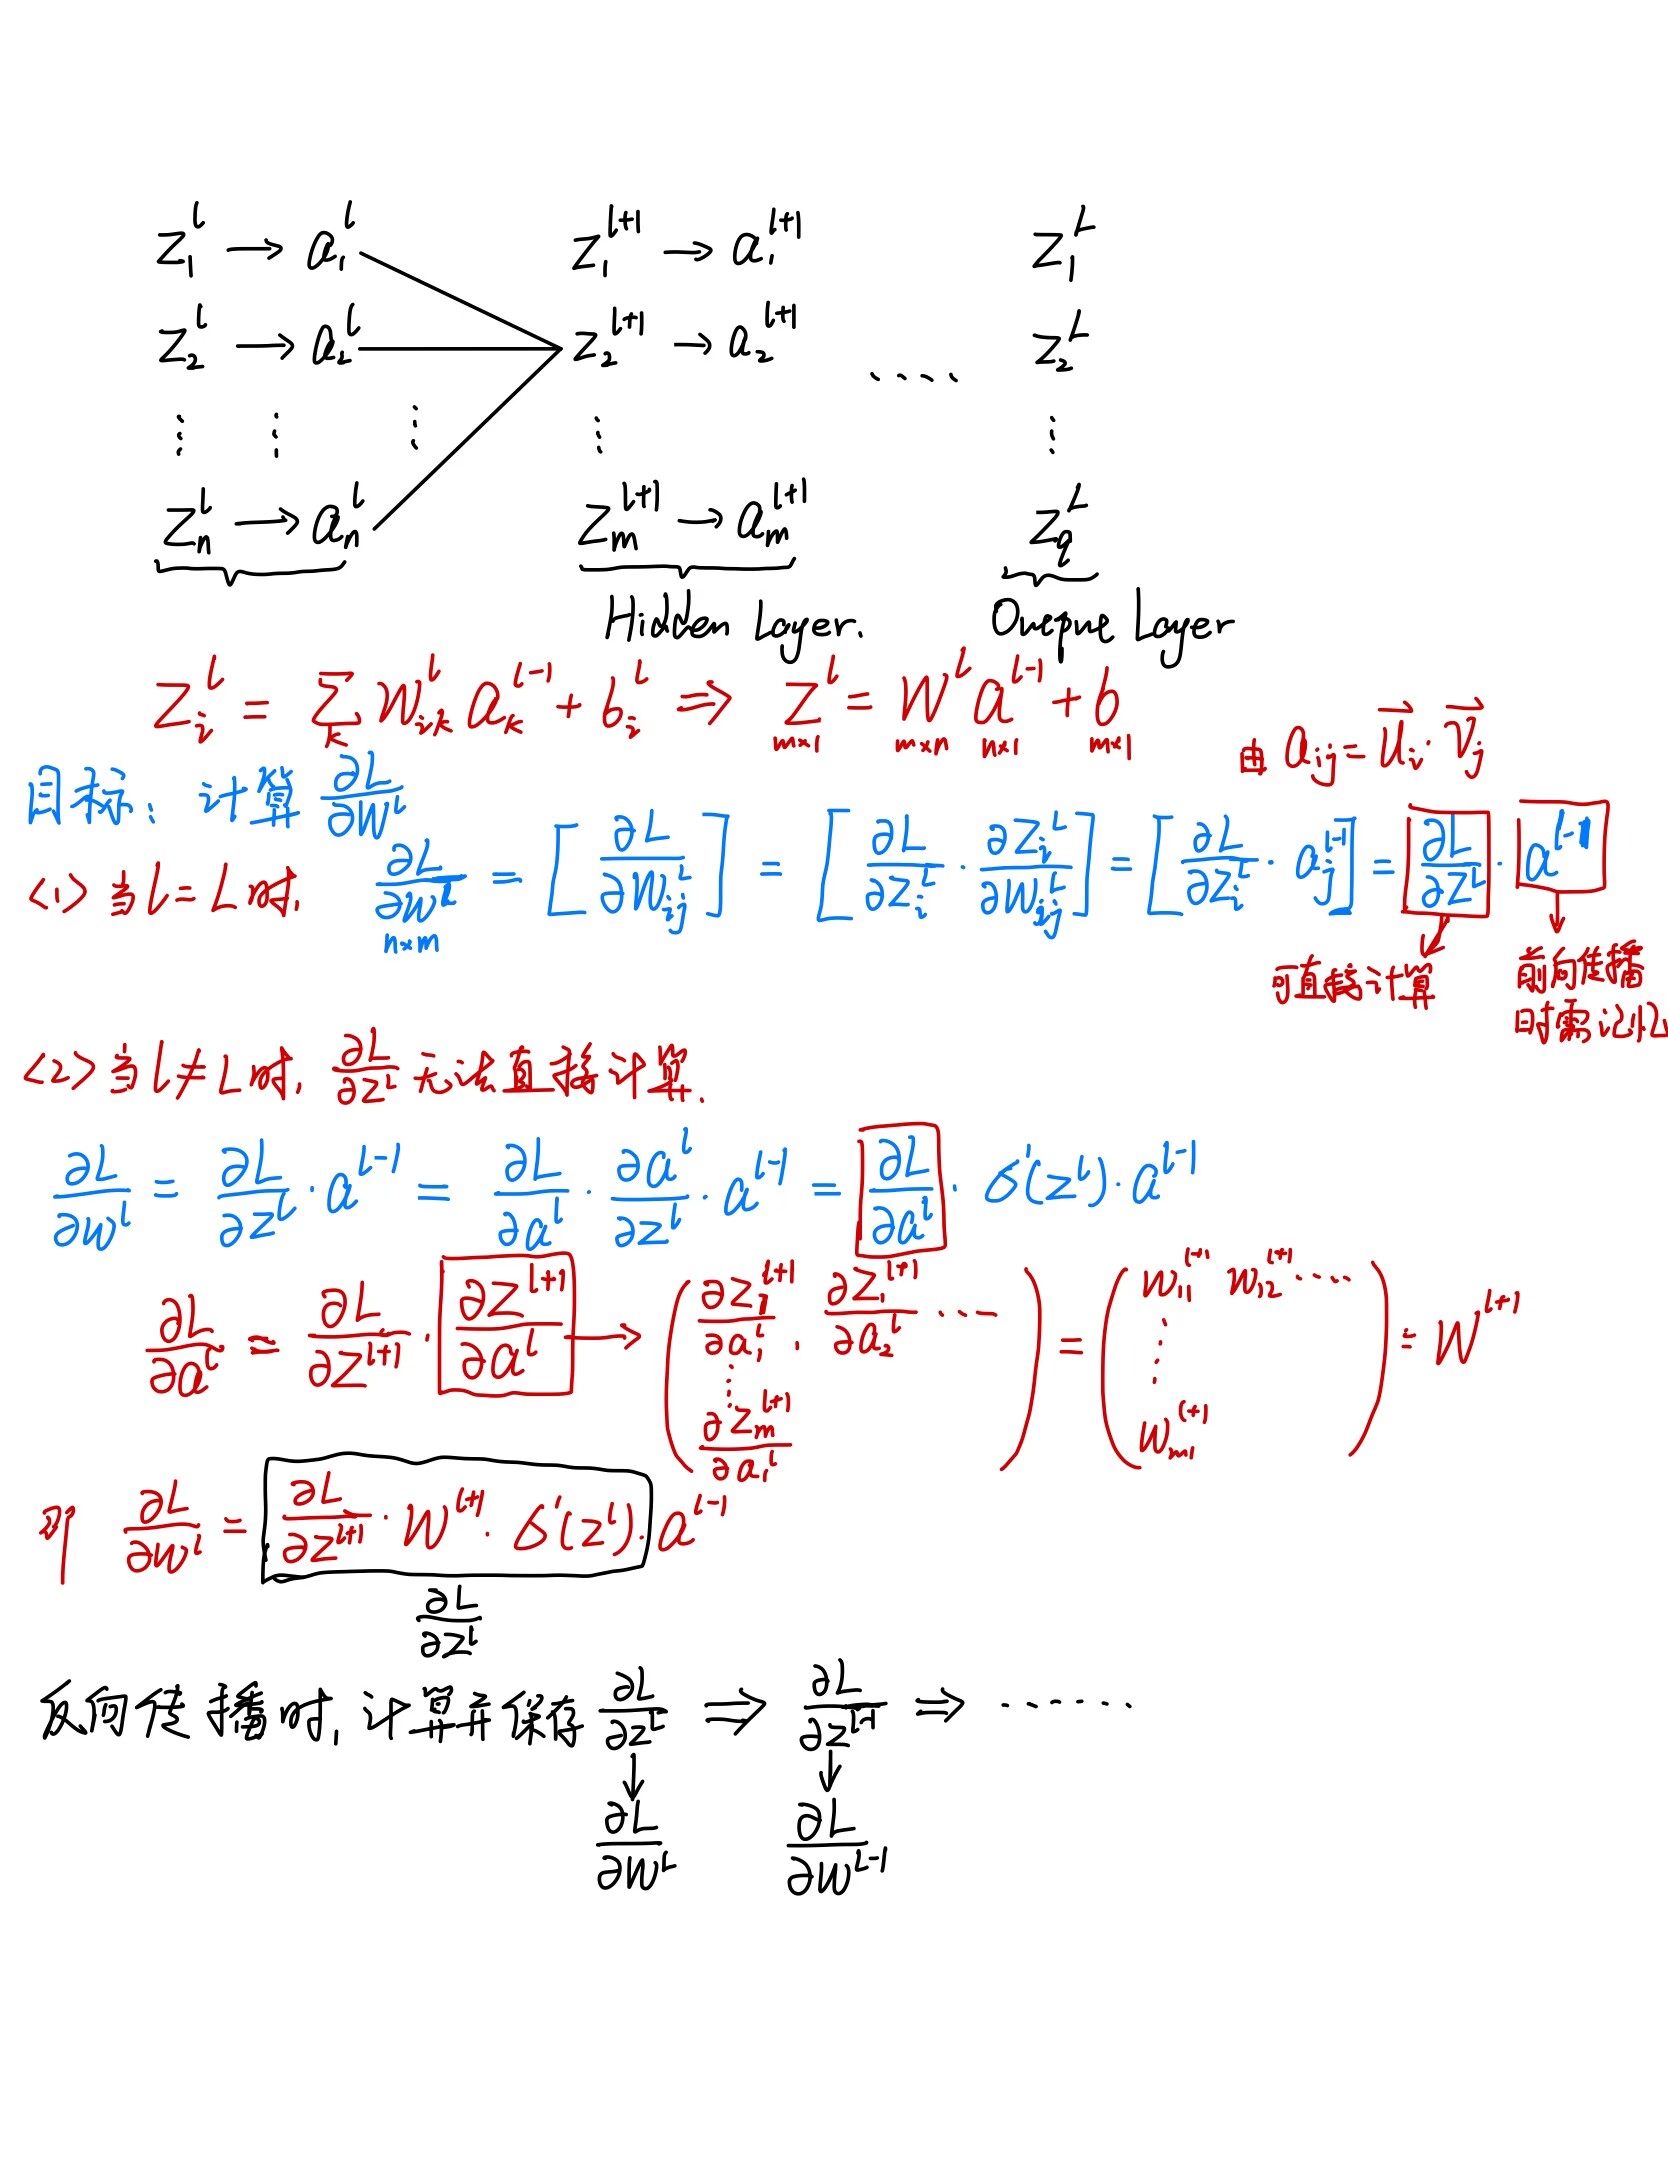 z₁^l → a₁^l z₁^{l+1} → a₁^{l+1} z₁^L
z₂^l → a₂^l z₂^{l+1} → a₂^{l+1} ···· z₂^L
⋮ ⋮ ⋮ ⋮ ⋮
zₙ^l → aₙ^l zₘ^{l+1} → aₘ^{l+1} z_q^L
Hidden Layer. Layer
z_i^l = Σ_k w_{ik}^l a_k^{l-1} + b_i^l ⇒ z^l = W^l a^{l-1} + b
m×1 m×n n×1 m×1
由 a_{ij} = u_i · v_j
目标: 计算 ∂L/∂W^l
<1> 当 l = L 时, ∂L/∂W^L = [∂L/∂W_{ij}^L] = [∂L/∂z_i^L · ∂z_i^L/∂W_{ij}^L] = [∂L/∂z_i^L · a_j^{l-1}] = ∂L/∂z^L · a^{l-1}
n×m
可直接计算
前向传播
时需记忆
<2> 当 l ≠ L 时, ∂L/∂z^l 无法直接计算.
∂L/∂w^l = ∂L/∂z^l · a^{l-1} = ∂L/∂a^l · ∂a^l/∂z^l · a^{l-1} = ∂L/∂a^l · σ'(z^l) · a^{l-1}
∂L/∂a^l = ∂L/∂z^{l+1} · ∂z^{l+1}/∂a^l → (∂z₁^{l+1}/∂a₁^l , ∂z₁^{l+1}/∂a₂^l ···· ⋮ ∂zₘ^{l+1}/∂a₁^l) = (w₁₁^{l+1} w₁₂^{l+1} ····· ⋮ w_{m1}^{l+1}) = W^{l+1}
即 ∂L/∂w^l = ∂L/∂z^{l+1} · W^{l+1} · σ'(z^l) · a^{l-1}
∂L/∂z^l
反向传播时, 计算并保存 ∂L/∂z^L ⇒ ∂L/∂z^{L-1} ⇒ ······
↓ ↓
∂L/∂W^L ∂L/∂W^{L-1}